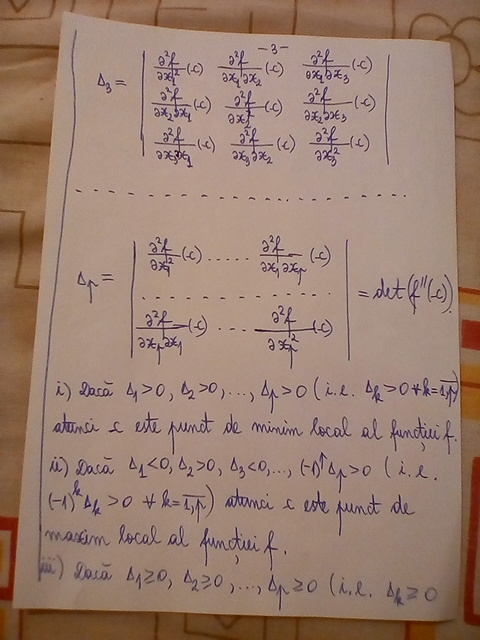 -3-
Δ₃ = | ∂²f/∂x₁² (c) ∂²f/∂x₁∂x₂ (c) ∂²f/∂x₁∂x₃ (c) |
| ∂²f/∂x₂∂x₁ (c) ∂²f/∂x₂² (c) ∂²f/∂x₂∂x₃ (c) |
| ∂²f/∂x₃∂x₁ (c) ∂²f/∂x₃∂x₂ (c) ∂²f/∂x₃² (c) |
Δₚ = | ∂²f/∂x₁² (c) ...... ∂²f/∂x₁∂xₚ (c) |
| .................. | = det(f''(c)).
| ∂²f/∂xₚ∂x₁ (c) ...... ∂²f/∂xₚ² (c) |
i) Dacă Δ₁>0, Δ₂>0, ..., Δₚ>0 (i.e. Δₖ>0 ∀ k=1,p)
atunci c este punct de minim local al funcției f.
ii) Dacă Δ₁<0, Δ₂>0, Δ₃<0, ..., (-1)ᵖ Δₚ>0 (i.e.
(-1)ᵏ Δₖ>0 ∀ k=1,p) atunci c este punct de
maxim local al funcției f.
iii) Dacă Δ₁≥0, Δ₂≥0, ..., Δₚ≥0 (i.e. Δₖ≥0